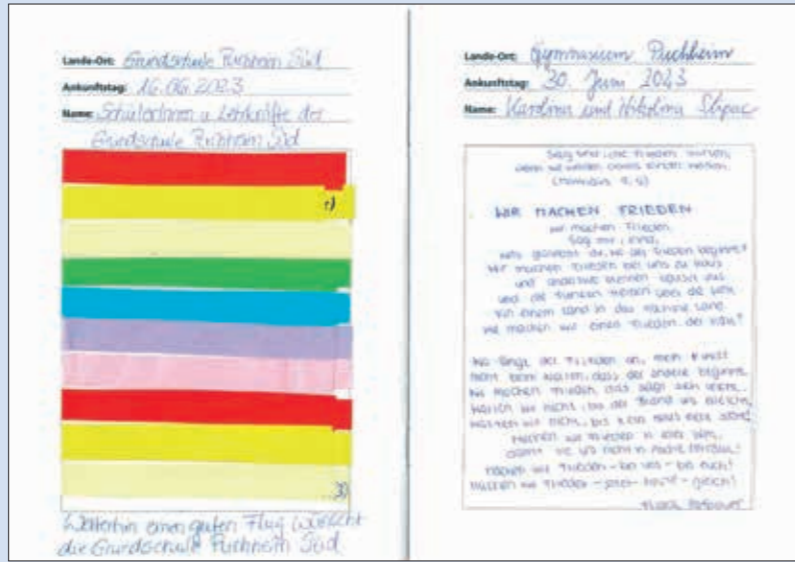 Lande-Ort: Grundschule Puchheim Süd
Ankunftstag: 16.06.2023
Name: SchülerInnen u Lehrkräfte der
Grundschule Puchheim Süd
Weiterhin einen guten Flug wünscht
die Grundschule Puchheim Süd
Lande-Ort: Gymnasium Puchheim
Ankunftstag: 30. Juni 2023
Name: Karolina und Nikolina
Selig sind, die Frieden
WIR MACHEN FRIEDEN
Wir machen Frieden.
Sag mir, Kind,
wo der Frieden beginnt?
Wir machen Frieden bei uns zu Haus
und
und die
Von einem Land in das nächste Land.
Wie machen wir einen Frieden, der hält?
Wo fängt der Frieden an, mein Kind?
Nicht beim Warten, dass der andere beginnt.
Wir machen Frieden, das sagt sich leicht.
Warten wir nicht, bis der Brand uns erreicht,
warten wir nicht, bis kein Haus mehr steht!
Machen wir Frieden in
damit sie uns nicht in
Machen wir Frieden – bei uns – bei euch!
Machen wir Frieden – jetzt – heute – gleich!